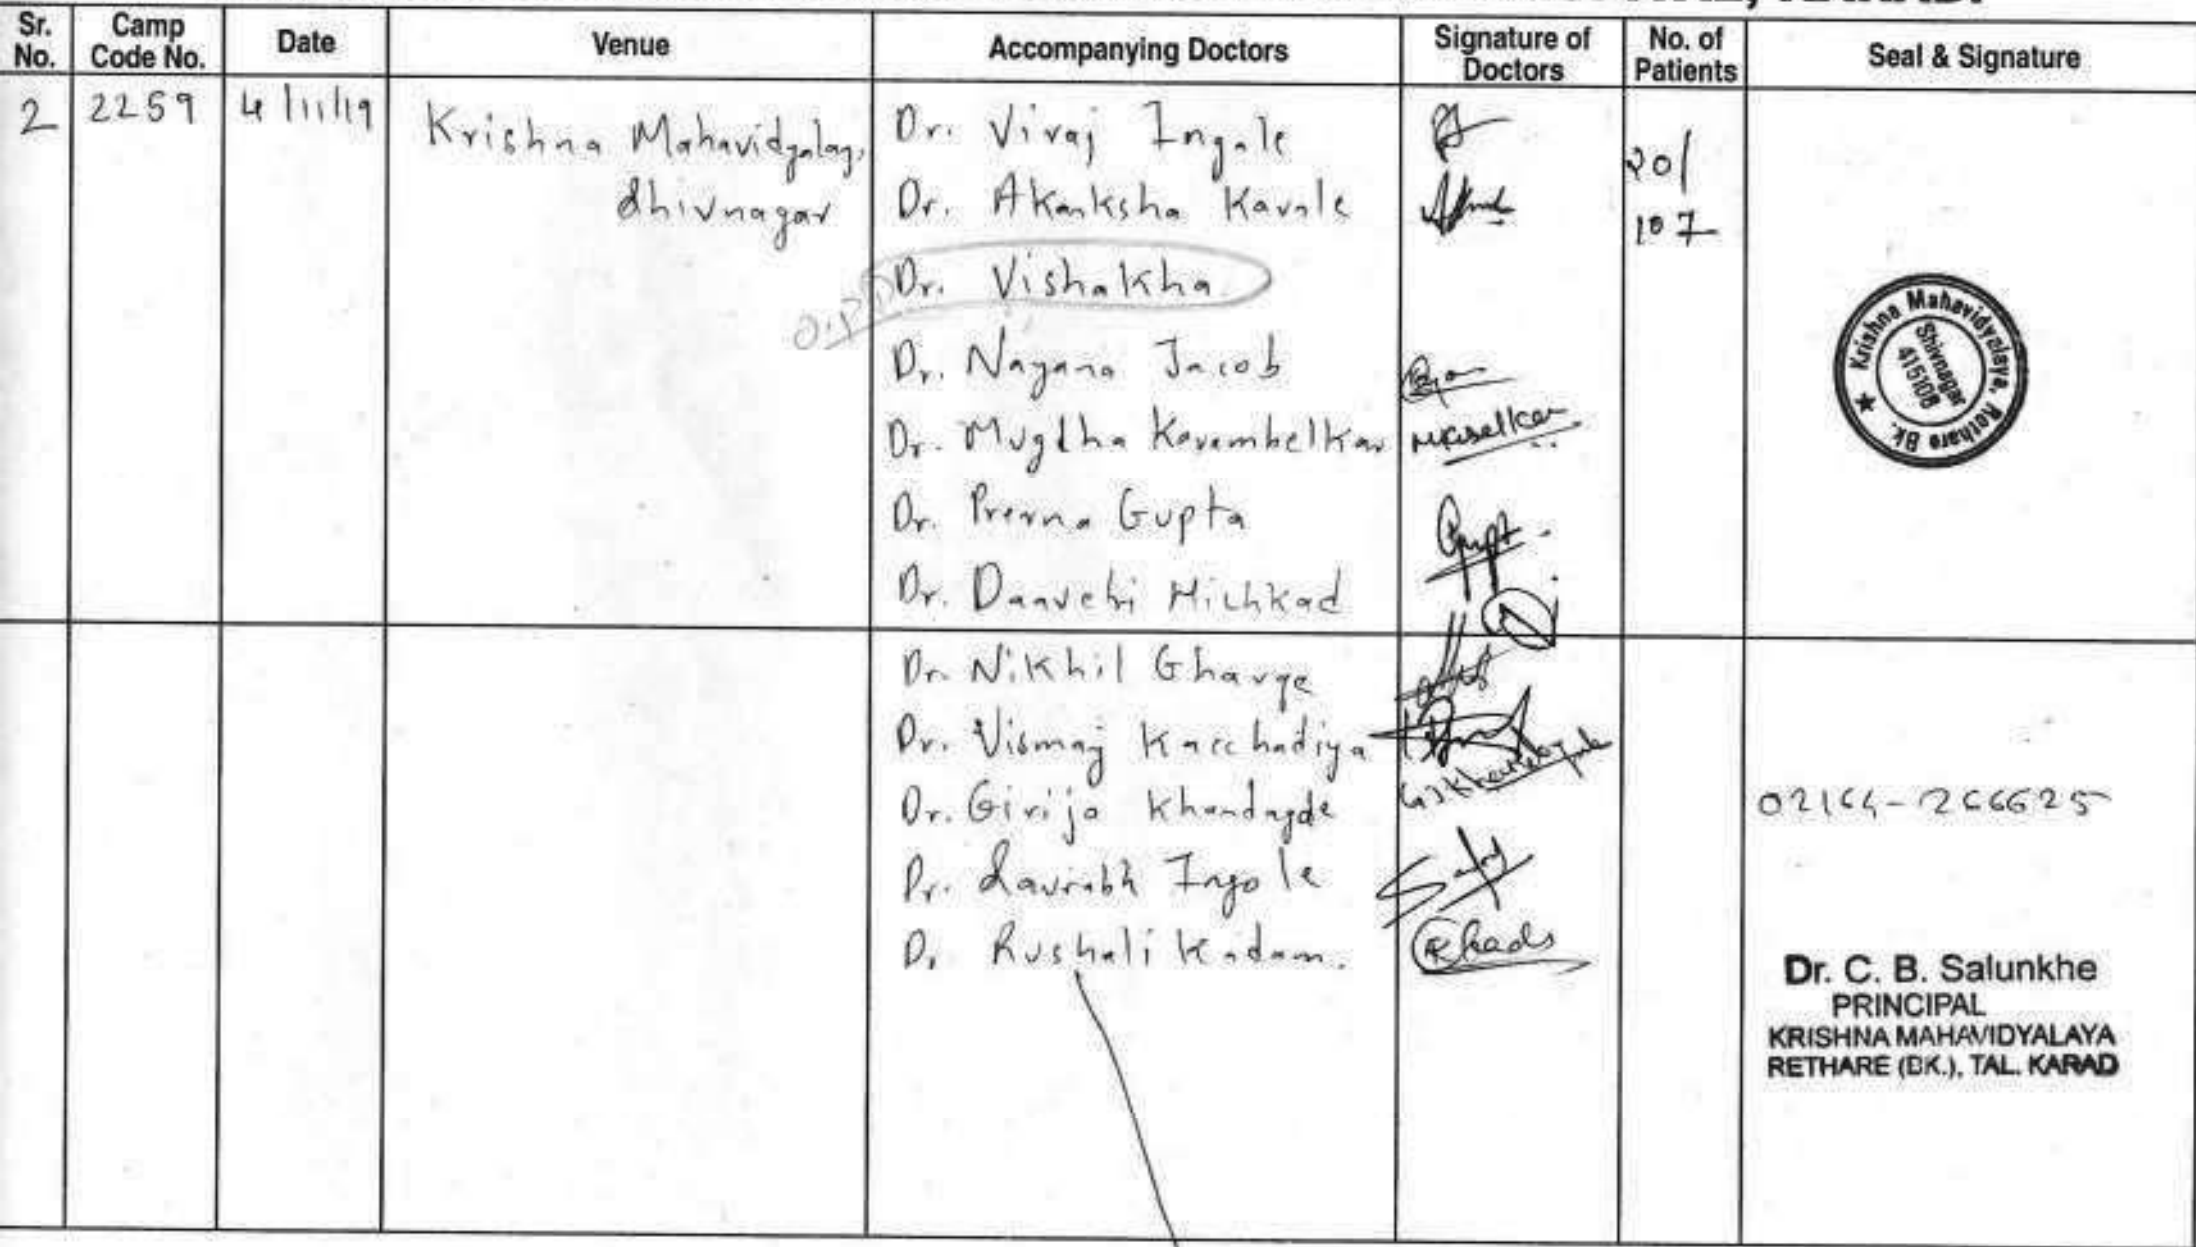 KARAD.
Sr. No. Camp Code No. Date Venue Accompanying Doctors Signature of Doctors No. of Patients Seal & Signature
2 2259 4/11/19 Krishna Mahavidyalay, Shivnagar
Dr. Viraj Ingale
Dr. Akanksha Kavale
20/
107
Dr. Vishakha
O.P.D
Dr. Nayana Jacob
Dr. Mugdha Karambelkar
Dr. Prerna Gupta
Gupt
Dr.
Krishna Mahavidyalaya, Rethare Bk.
Shivnagar
415108
Dr. Nikhil Gharge
Dr. Vismay Kacchadiya
Dr. Girija Khandagde
Dr. Saurabh Ingole
Dr. Rushali Kadam.
02164-266625
Dr. C. B. Salunkhe
PRINCIPAL
KRISHNA MAHAVIDYALAYA
RETHARE (BK.), TAL. KARAD